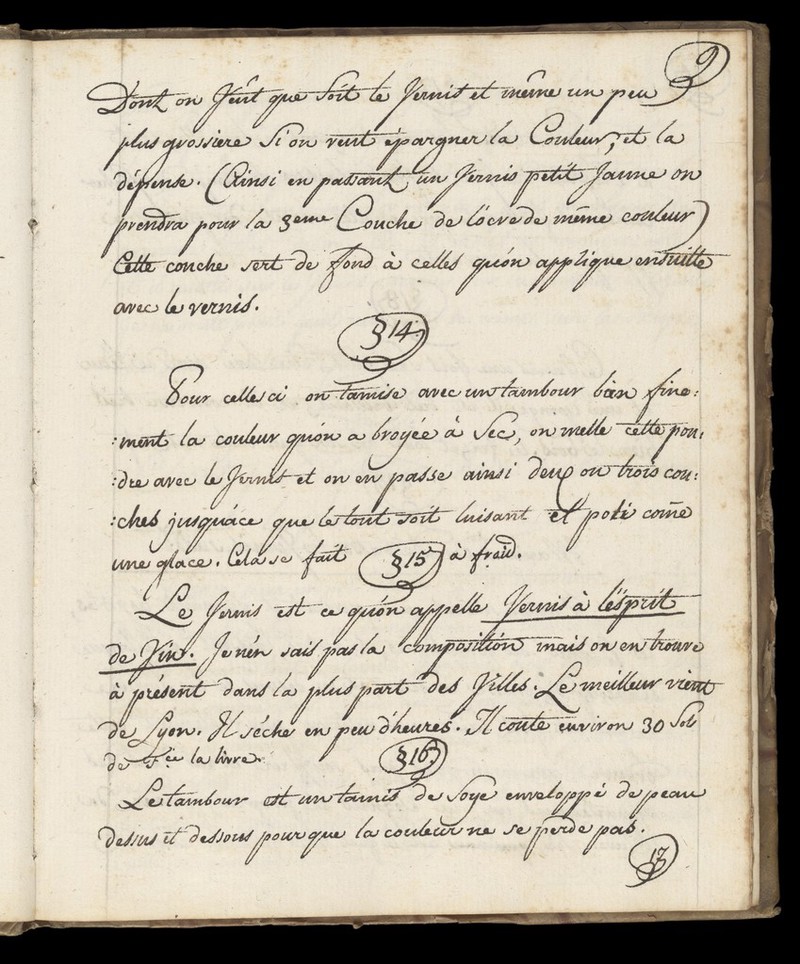 9
Dont on veut que soit le Vernis et même un peu
plus grossiere si on veut épargner la Couleur, et la
dépense. (Ainsi en passant un Vernis petit Jaune on
prendra pour la 3eme Couche de l'ocre de même couleur)
Cette couche sert de fond à celles qu'on applique ensuitte
avec le vernis.
§ 14.
Pour celles ci on tamise avec un tambour bien fine:
:ment la couleur qu'on a broyée à Sec, on melle cette pou:
:dre avec le Vernis et on en passe ainsi deux ou trois cou:
:ches jusqu'ace que le tout soit luisant et poli come
une glace. Cela se fait à froid.
§ 15
Le Vernis est ce qu'on appelle Vernis à l'ésprit
de Vin. Je n'én sais pas la composition mais on en trouve
à présent dans la plus part des Villes. Le meilleur vient
de Lyon. Il séche en peu d'heures. Il coute environ 30 Sols
de la livre.
§ 16
Le tambour est un tamis de Soye enveloppé de peau
dessus et dessous pour que la couleur ne se perde pas.
17